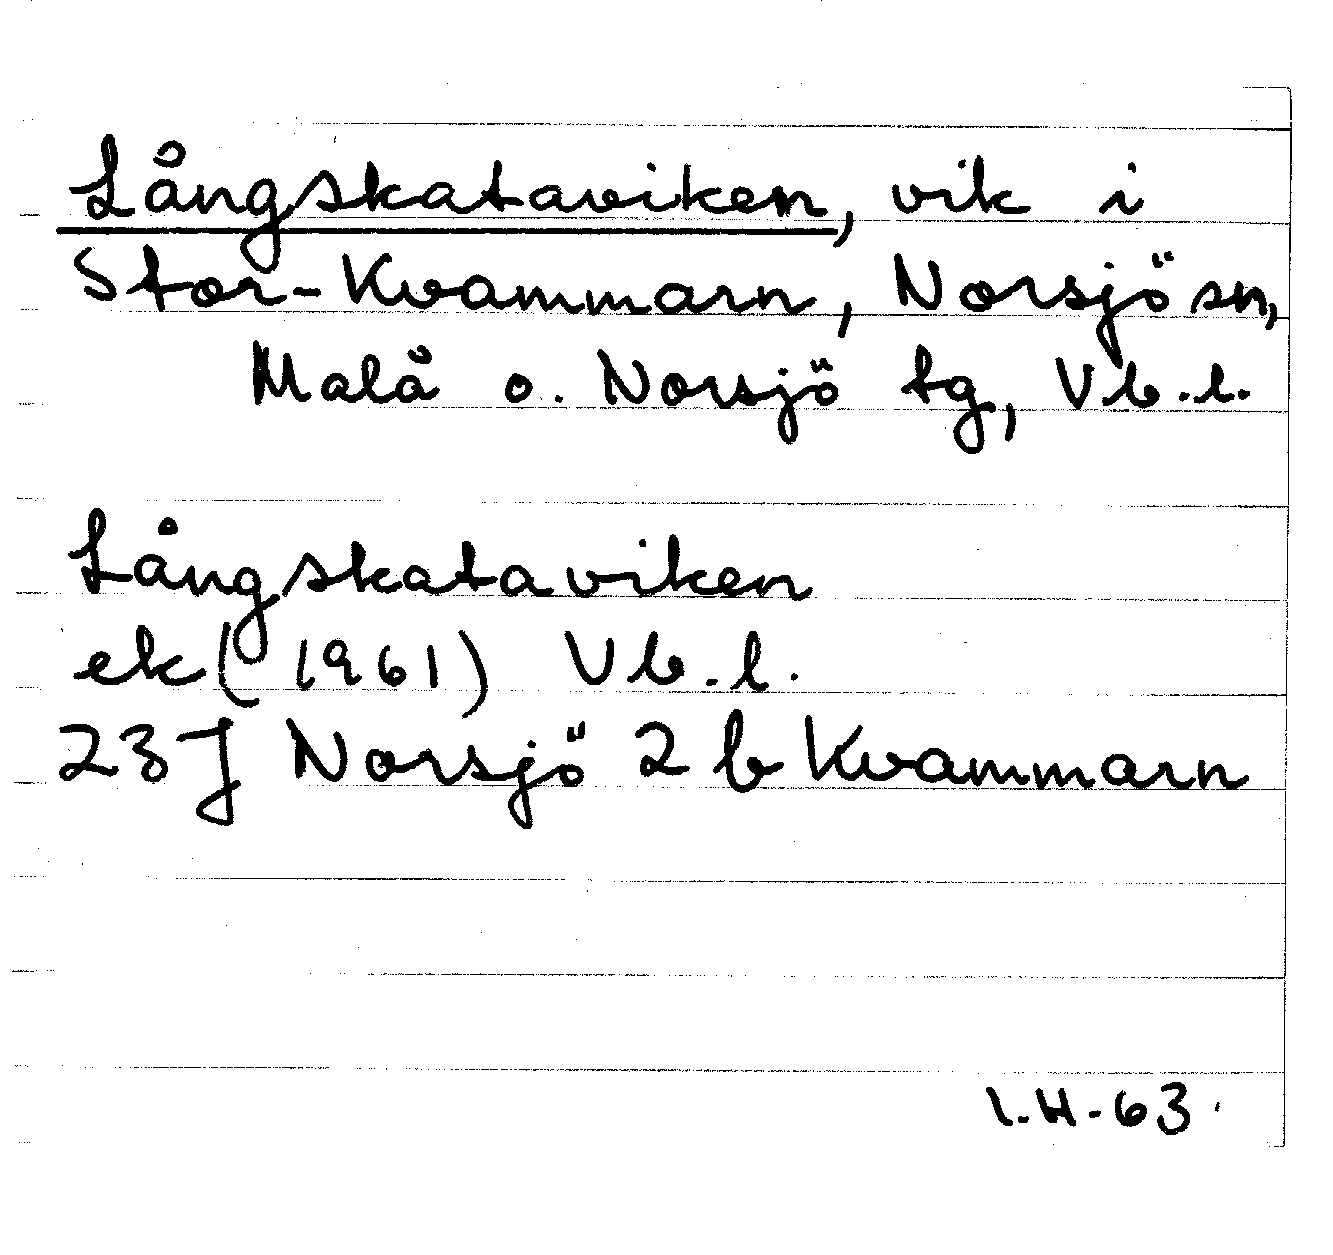 Långskataviken, vik i
Stor-Kvammarn, Norsjö sn,
Malå o. Norsjö tg, Vb.l.
Långskataviken
ek (1961) Vb.l.
23J Norsjö 2 b Kvammarn
I.H-63.